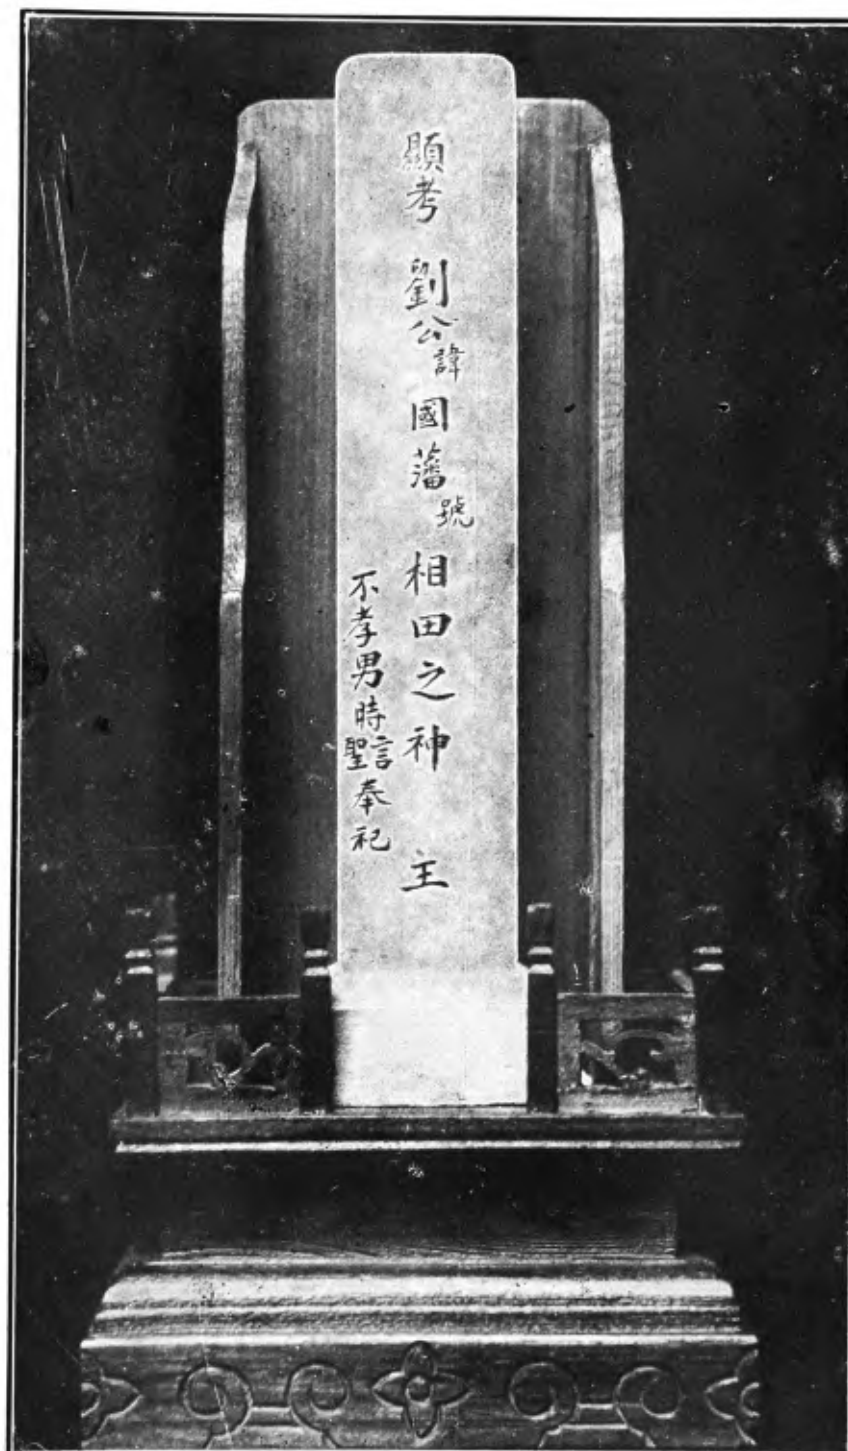 顯考劉公諱國藩號相田之神主
不孝男時言聖奉祀